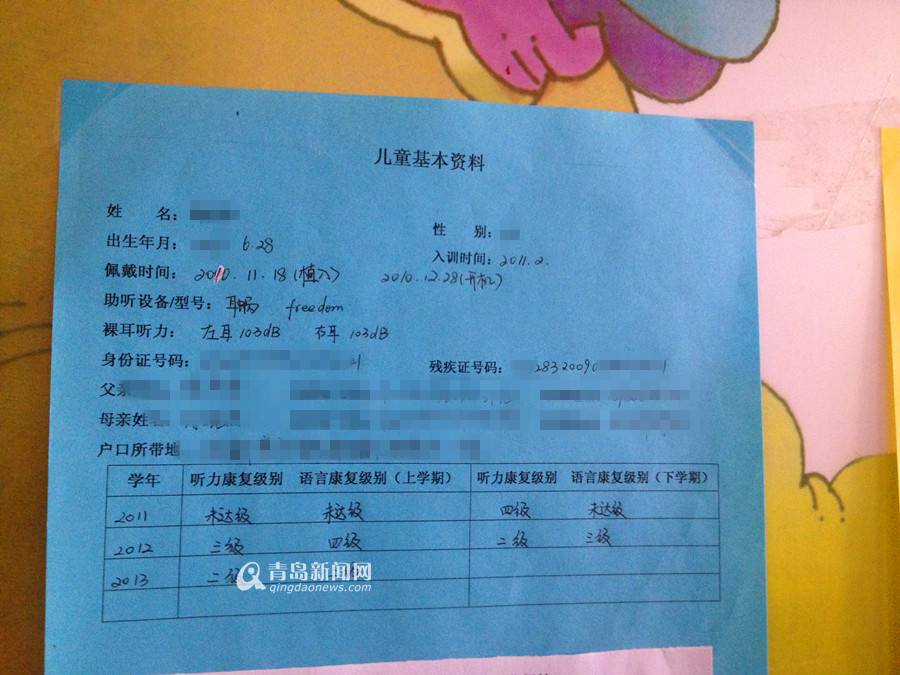 儿童基本资料
姓 名：
性 别：
出生年月： 6.28
入训时间：2011.2.
佩戴时间：2010.11.18(植入) 2010.12.28(开机)
助听设备/型号：耳蜗 freedom
裸耳听力：左耳103dB 右耳103dB
身份证号码：
残疾证号码： 28320090
父亲
母亲姓
户口所带地
学年 听力康复级别 语言康复级别（上学期） 听力康复级别 语言康复级别（下学期）
2011 未达级 未达级 四级 未达级
2012 三级 四级 二级 三级
2013 二级
青岛新闻网
qingdaonews.com